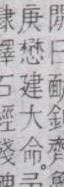 閒曰勔釗齊
庚懋建大命。
隸釋石經殘碑